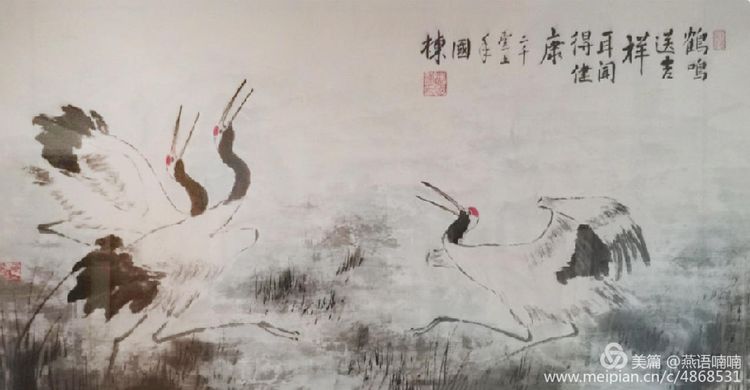 鶴鳴
送吉
祥
耳闻
得健
康
二千
年
國
棟
美篇 @燕语喃喃
www.meipian.cn/c/4868531